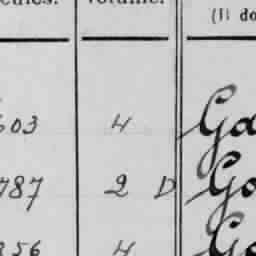 volume.
(1) do
603 4 Go
787 2 D Go
356 4 Go